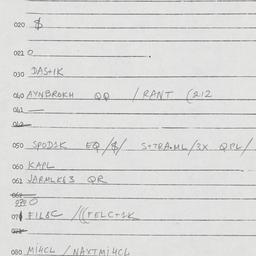 020 $
021 0
030 DAS+1K
040 AYNBROKH QQ / RANT (212
041
042
050 SPOD1K EQ /$/ S+TRA.ML/3X QPL/
060 KAPL
061 JARMLK63 QR
070 0
071 E1L&C /((TELC+1K
080 M14CL / NAXTM14CL